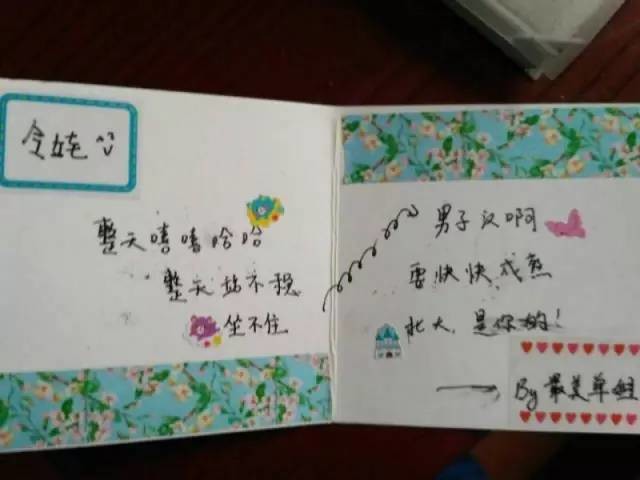 整天嘻嘻哈哈
整天站不稳
坐不住
男子汉啊
要快快成熟
北大,是你的!
By 最美单姐